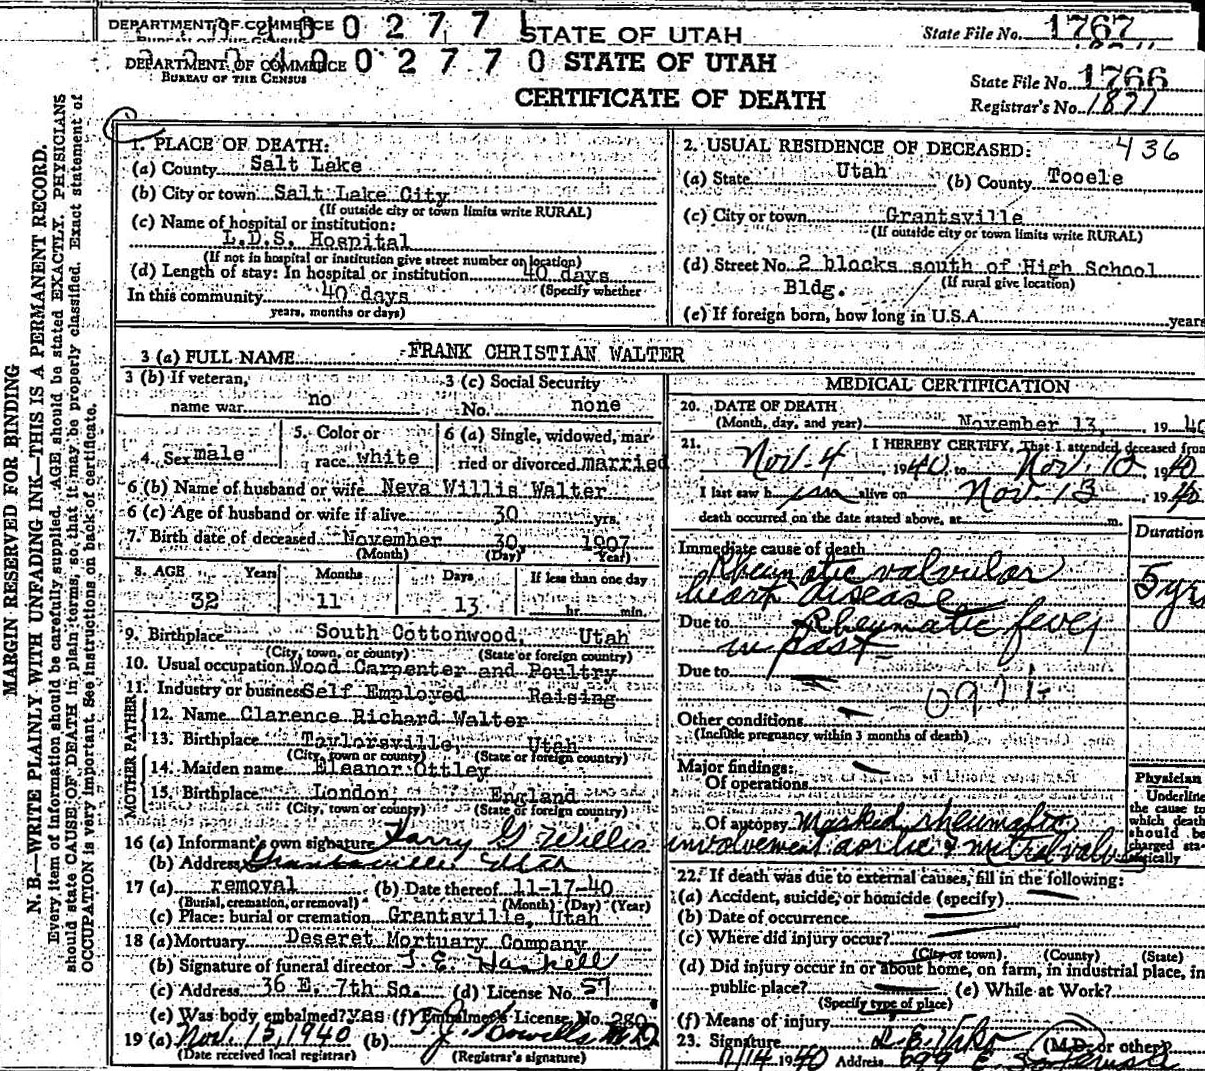 DEPARTMENT OF COMMERCE
STATE OF UTAH
State File No. 1767
DEPARTMENT OF COMMERCE 0 2 7 7 0 STATE OF UTAH
BUREAU OF THE CENSUS
State File No. 1766
CERTIFICATE OF DEATH
Registrar's No. 1871
MARGIN RESERVED FOR BINDING
N. B.—WRITE PLAINLY WITH UNFADING INK—THIS IS A PERMANENT RECORD.
Every item of information should be carefully supplied. AGE should be stated EXACTLY. PHYSICIANS
should state CAUSE OF DEATH in plain terms, so that it may be properly classified. Exact statement of
OCCUPATION is very important. See instructions on back of certificate.
1. PLACE OF DEATH:
(a) County Salt Lake
(b) City or town Salt Lake City
(If outside city or town limits write RURAL)
(c) Name of hospital or institution:
L.D.S. Hospital
(If not in hospital or institution give street number or location)
(d) Length of stay: In hospital or institution 40 days
(Specify whether
In this community 40 days
years, months or days)
2. USUAL RESIDENCE OF DECEASED: 436
(a) State Utah (b) County Tooele
(c) City or town Grantsville
(If outside city or town limits write RURAL)
(d) Street No. 2 blocks south of High School
Bldg. (If rural give location)
(e) If foreign born, how long in U.S.A. years
3 (a) FULL NAME FRANK CHRISTIAN WALTER
3 (b) If veteran, name war no
3 (c) Social Security No. none
4. Sex male
5. Color or race white
6 (a) Single, widowed, married or divorced married
6 (b) Name of husband or wife Neva Willis Walter
6 (c) Age of husband or wife if alive 30 yrs.
7. Birth date of deceased November 30, 1907
(Month) (Day) (Year)
8. AGE Years Months Days If less than one day
32 11 13 hr. min.
9. Birthplace South Cottonwood, Utah
(City, town, or county) (State or foreign country)
10. Usual occupation Wood Carpenter and Poultry
11. Industry or business Self Employed Raising
FATHER
12. Name Clarence Richard Walter
13. Birthplace Taylorsville, Utah
(City, town or county) (State or foreign country)
MOTHER
14. Maiden name Eleanor Ottley
15. Birthplace London England
(City, town or county) (State or foreign country)
16 (a) Informant's own signature Harry G. Willis
(b) Address Grantsville Utah
17 (a) removal (b) Date thereof 11-17-40
(Burial, cremation, or removal) (Month) (Day) (Year)
(c) Place: burial or cremation Grantsville, Utah
18 (a) Mortuary Deseret Mortuary Company
(b) Signature of funeral director
(c) Address 36 E. 7th So. (d) License No. 57
(e) Was body embalmed? yes (f) Embalmer's License No. 280
19 (a) Nov. 15, 1940 (b) M.D.
(Date received local registrar) (Registrar's signature)
MEDICAL CERTIFICATION
20. DATE OF DEATH
(Month, day, and year) November 13, 1940
21. I HEREBY CERTIFY, That I attended deceased from
Nov. 4, 1940, to Nov. 13 1940
I last saw him alive on Nov. 13, 1940
death occurred on the date stated above, at m.
Duration
Immediate cause of death
Rheumatic valvular
heart disease 5 yrs
Due to Rheumatic fever
in past
Due to
Other conditions
(Include pregnancy within 3 months of death)
Major findings:
Of operations
Of autopsy Marked rheumatic
involvement aortic & mitral valves
Physician
Underline
the cause to
which death
should be
charged sta-
tistically
22. If death was due to external causes, fill in the following:
(a) Accident, suicide, or homicide (specify)
(b) Date of occurrence
(c) Where did injury occur?
(City or town) (County) (State)
(d) Did injury occur in or about home, on farm, in industrial place, in
public place? (e) While at Work?
(Specify type of place)
(f) Means of injury
23. Signature (M.D. or other)
11/14 1940 Address 699 E. So. Temple